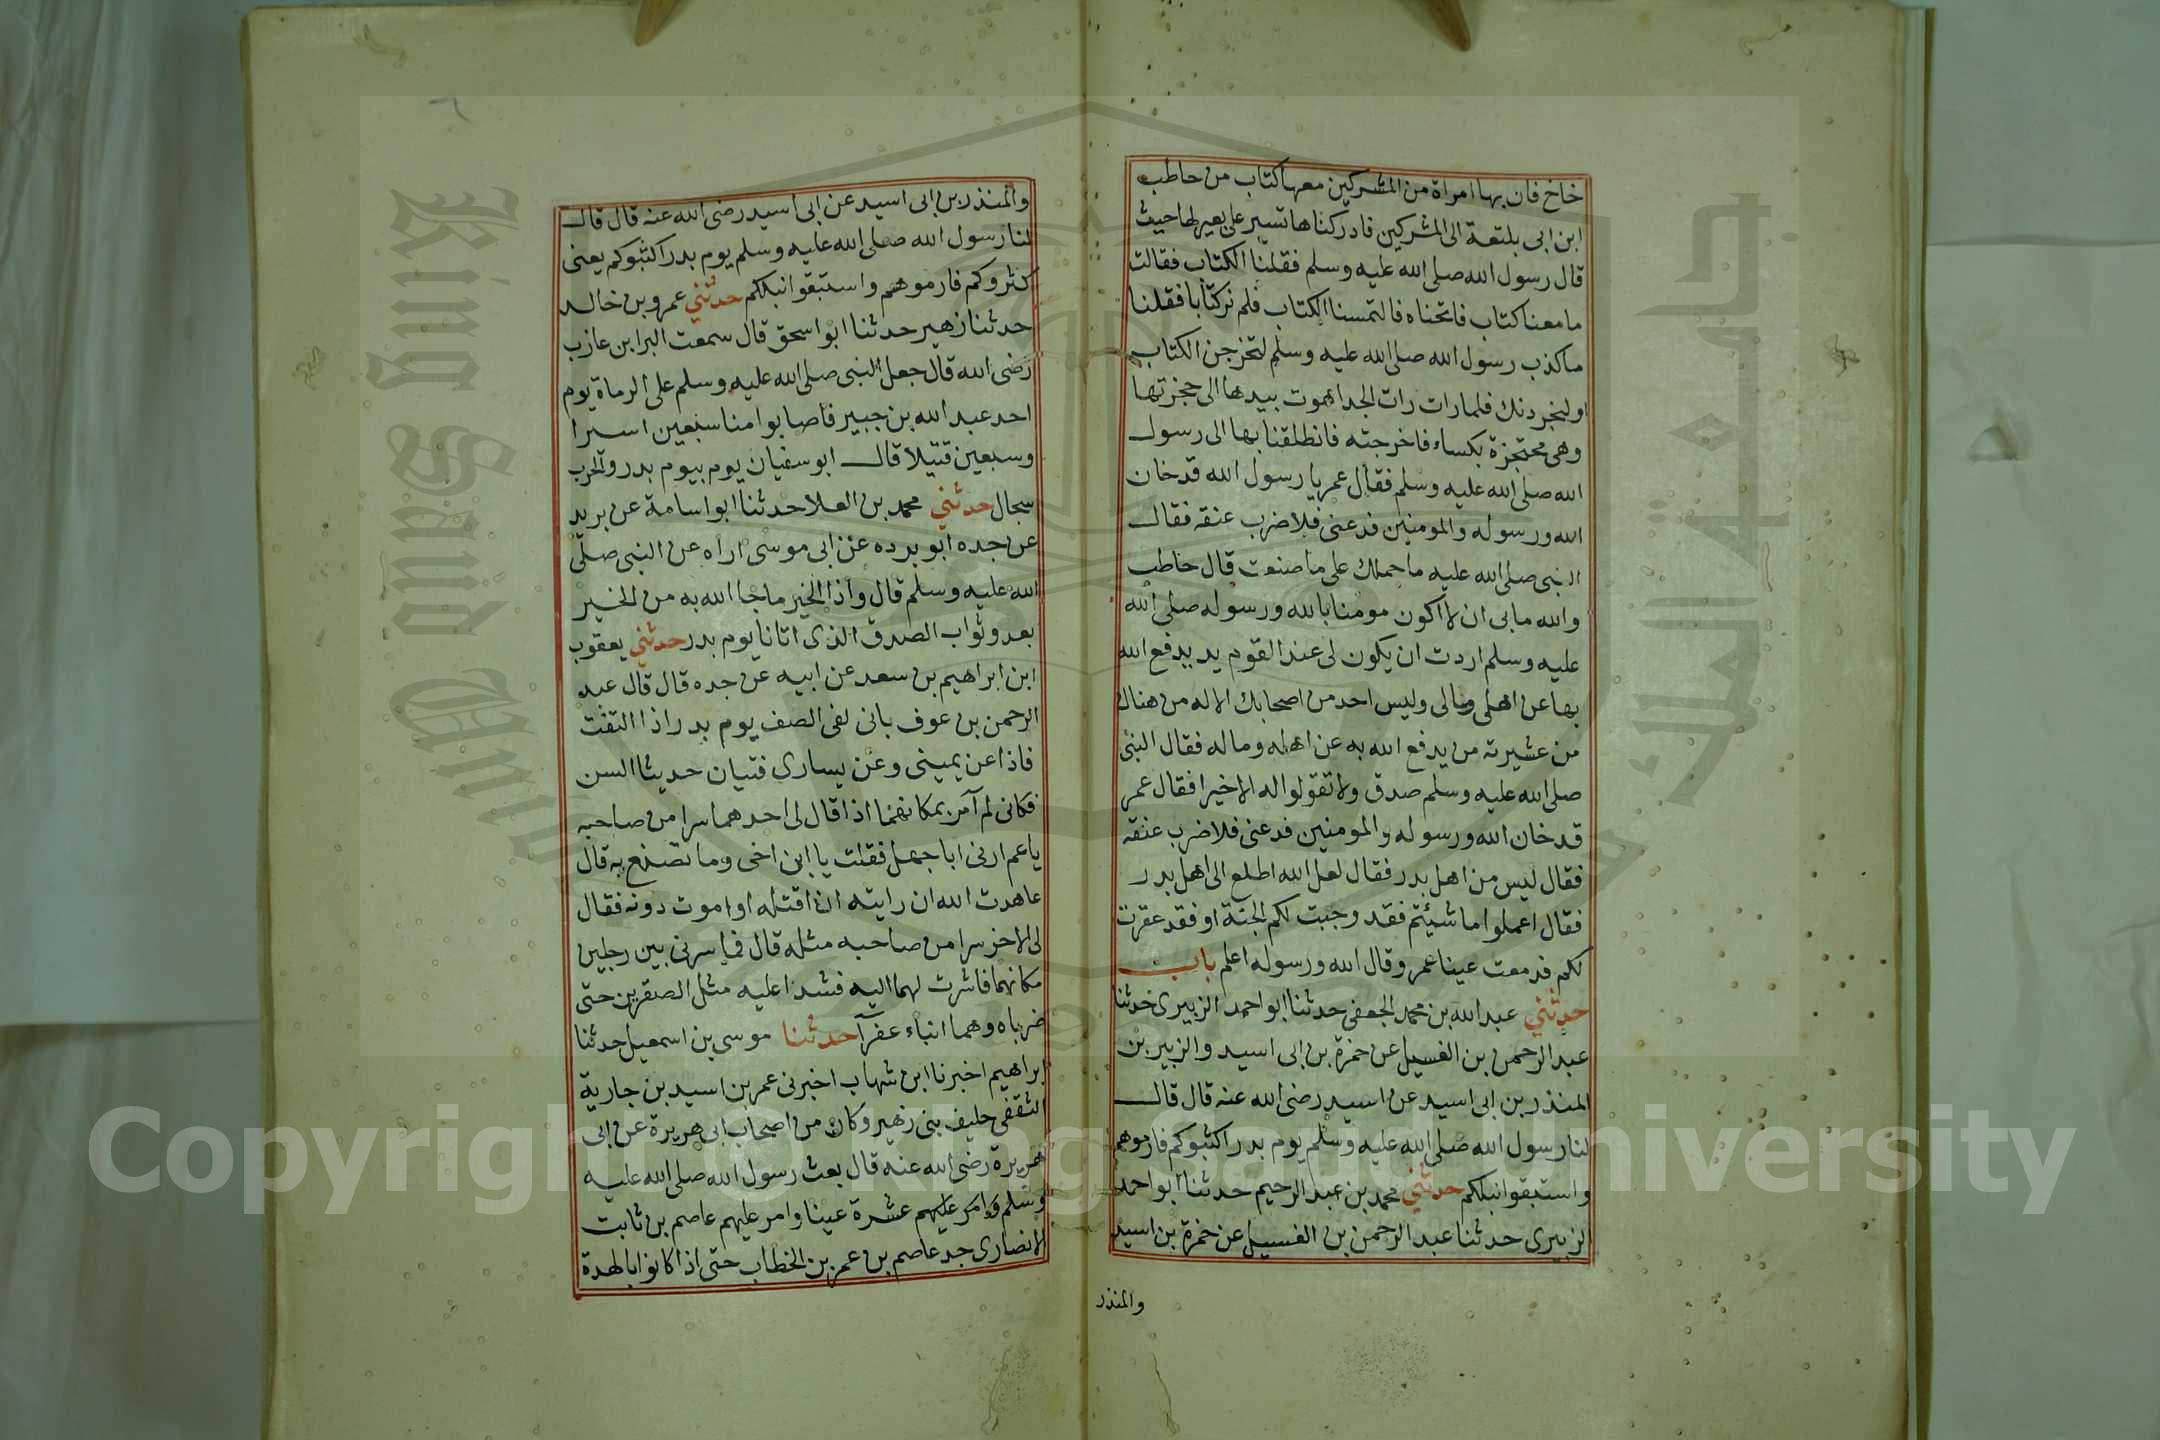 خاخ فان بها امراة من المشركين معها كتاب من حاطب
ابن ابى بلتعة الى المشركين فادركناها تسير على بعير لها حيث
قال رسول الله صلى الله عليه وسلم فقلنا الكتاب فقالت
ما معنا كتاب فانخناه فالتمسنا الكتاب فلم نر كتابا فقلنا
ما كذب رسول الله صلى الله عليه وسلم لتخرجن الكتاب
او لنجردنك فلما رات رات الجد اهموت بيدها الى حجزتها
وهى محتجزة بكساء فاخرجته فانطلقنا بها الى رسول
الله صلى الله عليه وسلم فقال عمر يا رسول الله قد خان
الله ورسوله والمومنين فدعنى فلاضرب عنقه فقال
النبى صلى الله عليه ما حملك على ما صنعت قال حاطب
والله مابى ان لا اكون مومنا بالله ورسوله صلى الله
عليه وسلم اردت ان يكون لى عند القوم يد يدفع الله
بها عن اهلى ومالى وليس احد من اصحابك الا له من هناك
من عشيرته من يدفع الله به عن اهله وماله فقال النبى
صلى الله عليه وسلم صدق ولا تقولوا له الا خيرا فقال عمر
قد خان الله ورسوله والمومنين فدعنى فلاضرب عنقه
فقال ليس من اهل بدر فقال لعل الله اطلع الى اهل بدر
فقال اعملوا ما شيئتم فقد وجبت لكم الجنة او فقد غفرت
لكم فدمعت عينا عمر وقال الله ورسوله اعلم باب
حدثني عبد الله بن محمد الجعفى حدثنا ابو احمد الزبيرى حدثنا
عبد الرحمن بن الغسيل عن حمزة بن ابى اسيد والزبير بن
المنذر بن ابى اسيد عن اسيد رضى الله عنه قال قال
لنا رسول الله صلى الله عليه وسلم يوم بدر اكثبوكم فارموهم
واستبقوا نبلكم حدثني محمد بن عبد الرحيم حدثنا ابو احمد
الزبيرى حدثنا عبد الرحمن بن الغسيل عن حمزة بن اسيد
والمنذر
والمنذر بن ابى اسيد عن ابى اسيد رضى الله عنه قال قال
لنا رسول الله صلى الله عليه وسلم يوم بدر اكثبوكم يعنى
كثروكم فارموهم واستبقوا نبلكم حدثني عمرو بن خالد
حدثنا زهير حدثنا ابو اسحق قال سمعت البرا بن عازب
رضى الله قال جعل النبى صلى الله عليه وسلم على الرماة يوم
احد عبد الله بن جبير فاصابوا منا سبعين اسيرا
وسبعين قتيلا قال ابو سفيان يوم بيوم بدر والحرب
سجال حدثني محمد بن العلا حدثنا ابو اسامة عن بريد
عن جده ابو برده عن ابى موسى اراه عن النبى صلى
الله عليه وسلم قال واذا الخير ما جا الله به من الخير
بعد وثواب الصدق الذى اتانا يوم بدر حدثني يعقوب
ابن ابراهيم بن سعد عن ابيه عن جده قال قال عبد
الرحمن بن عوف بانى لفى الصف يوم بدر اذا التفت
فاذا عن يمينى وعن يسارى فتيان حديثا السن
فكانى لم آمن بمكانهما اذا قال لى احدهما سرا من صاحبه
يا عم ارنى ابا جهل فقلت يا ابن اخى وما تصنع به قال
عاهدت الله ان رايته ان اقتله او اموت دونه فقال
لى الاخر سرا من صاحبه مثله قال فما سرنى بين رجلين
مكانهما فاشرت لهما اليه فشدا عليه مثل الصقرين حتى
ضرباه وهما ابناء عفرآ حدثنا موسى بن اسمعيل حدثنا
ابراهيم اخبرنا ابن شهاب اخبرنى عمر بن اسيد بن جارية
الثقفى حليف بنى زهير وكان من اصحاب ابى هريرة عن ابى
هريرة رضى الله عنه قال بعث رسول الله صلى الله عليه
وسلم وامر عليهم عشرة عينا وامر عليهم عاصم بن ثابت
الانصارى جد عاصم بن عمر بن الخطاب حتى اذا كانوا بالهدة
King Saud University
جامعة الملك سعود
Copyright © King Saud University